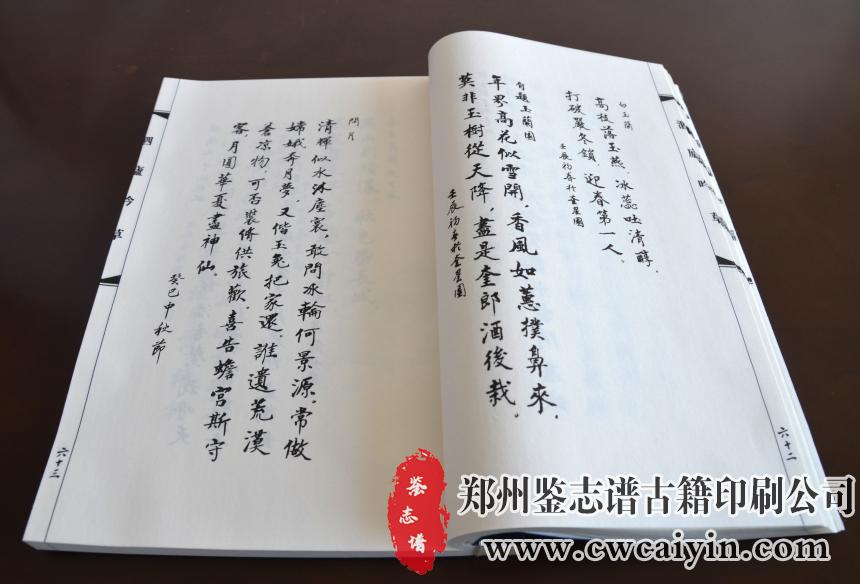 白玉蘭
高枝落玉燕，冰蕊吐清醇，
打破嚴冬鎖，迎春第一人。
壬辰初春於奎星園
自題玉蘭園
年界高花似雪開，香風如蕙撲鼻來，
莫非玉樹從天降，盡是奎郎酒後栽。
壬辰初春於奎星園
六十二
問月
清輝似水沐塵寰，敢問冰輪何景源。常做
嫦娥奔月夢，又偕玉兔把家還。誰遺荒漠
苍凉物，可否裝修供旅歡。喜告蟾宮斯守
客，月圓華夏盡神仙。
癸巳中秋節
吟草
六十三
鉴志谱
郑州鉴志谱古籍印刷公司
www.cwcaiyin.com